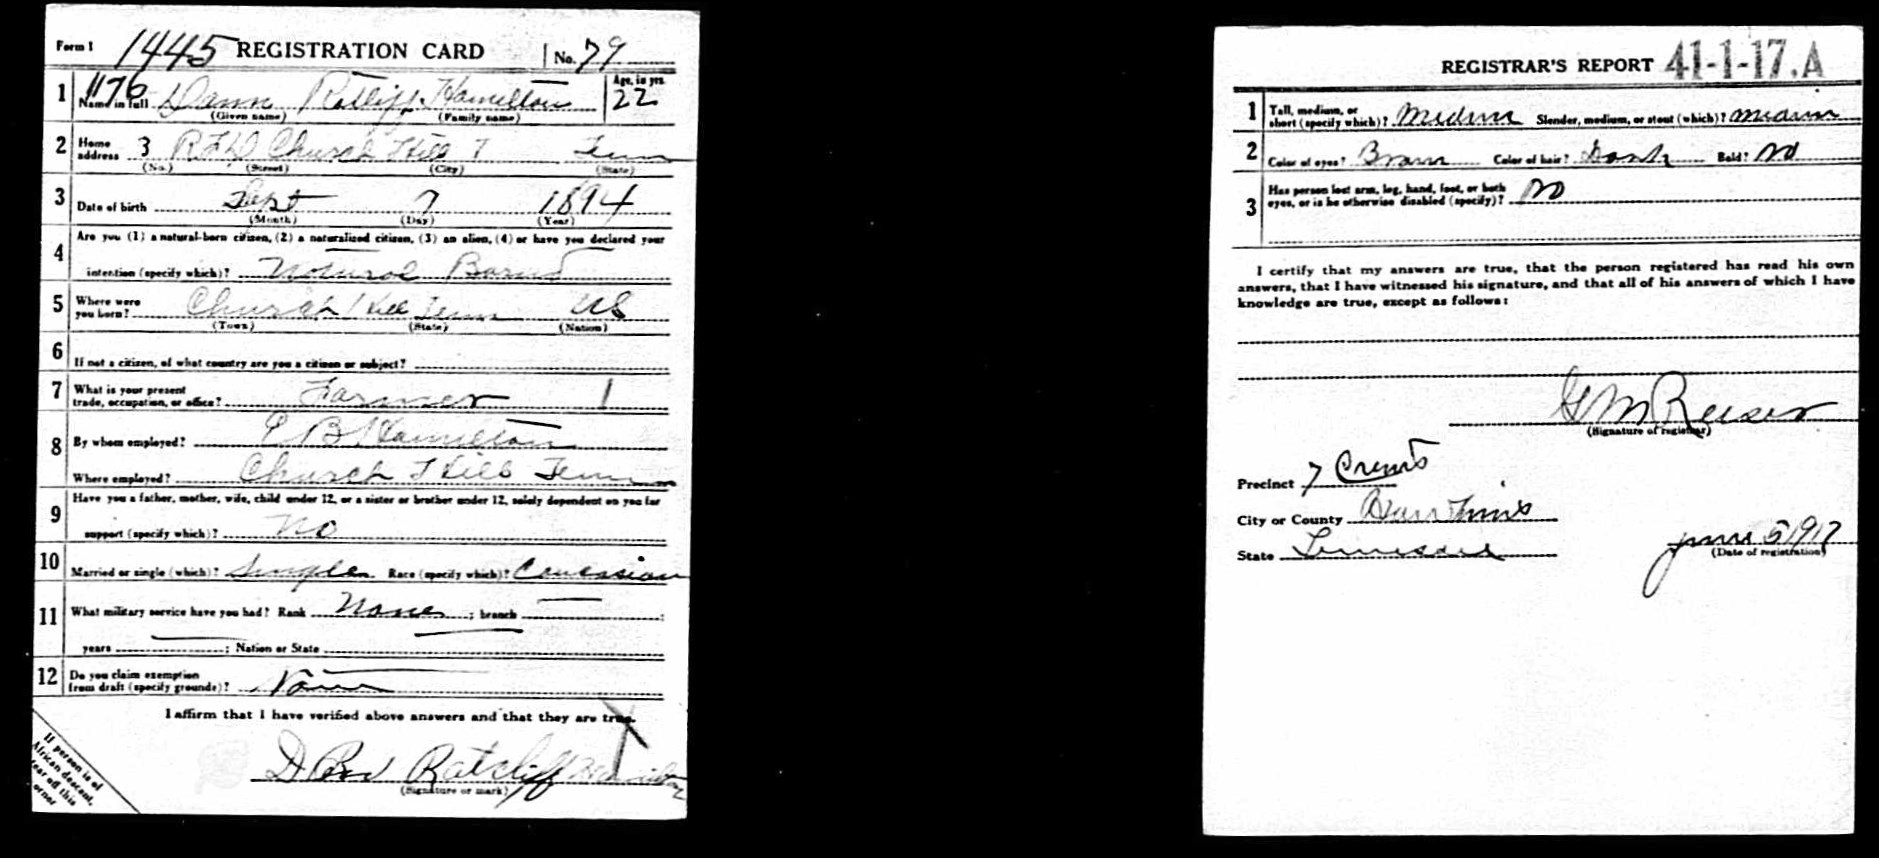 Form 1 1445 REGISTRATION CARD No. 79
1176
1 Name in full Hamilton Age, in yrs. 22
(Given name) (Family name)
2 Home address 3 RFD Church Hill Tenn
(No.) (Street) (City) (State)
3 Date of birth Sept 7 1894
(Month) (Day) (Year)
4 Are you (1) a natural-born citizen, (2) a naturalized citizen, (3) an alien, (4) or have you declared your
intention (specify which)? Natural
5 Where were you born? Church Hill Tenn US
(Town) (State) (Nation)
6 If not a citizen, of what country are you a citizen or subject?
7 What is your present
trade, occupation, or office? Farmer
8 By whom employed? E B Hamilton
Where employed? Church Hill Tenn
9 Have you a father, mother, wife, child under 12, or a sister or brother under 12, solely dependent on you for
support (specify which)? No
10 Married or single (which)? Single Race (specify which)? Caucassian
11 What military service have you had? Rank None ; branch ;
years ; Nation or State
12 Do you claim exemption
from draft (specify grounds)?
I affirm that I have verified above answers and that they are true.
Ratcliff Hamilton
(Signature or mark)
If person is of
African descent,
tear off this
corner
REGISTRAR'S REPORT 41-1-17.A
1 Tall, medium, or
short (specify which)? Medium Slender, medium, or stout (which)? Medium
2 Color of eyes? Brown Color of hair? Dark Bald? No
3 Has person lost arm, leg, hand, foot, or both
eyes, or is he otherwise disabled (specify)? No
I certify that my answers are true, that the person registered has read his own
answers, that I have witnessed his signature, and that all of his answers of which I have
knowledge are true, except as follows:
G M Reeser
(Signature of registrar)
Precinct 7
City or County Hawkins
State Tennessee
June 5 1917
(Date of registration)